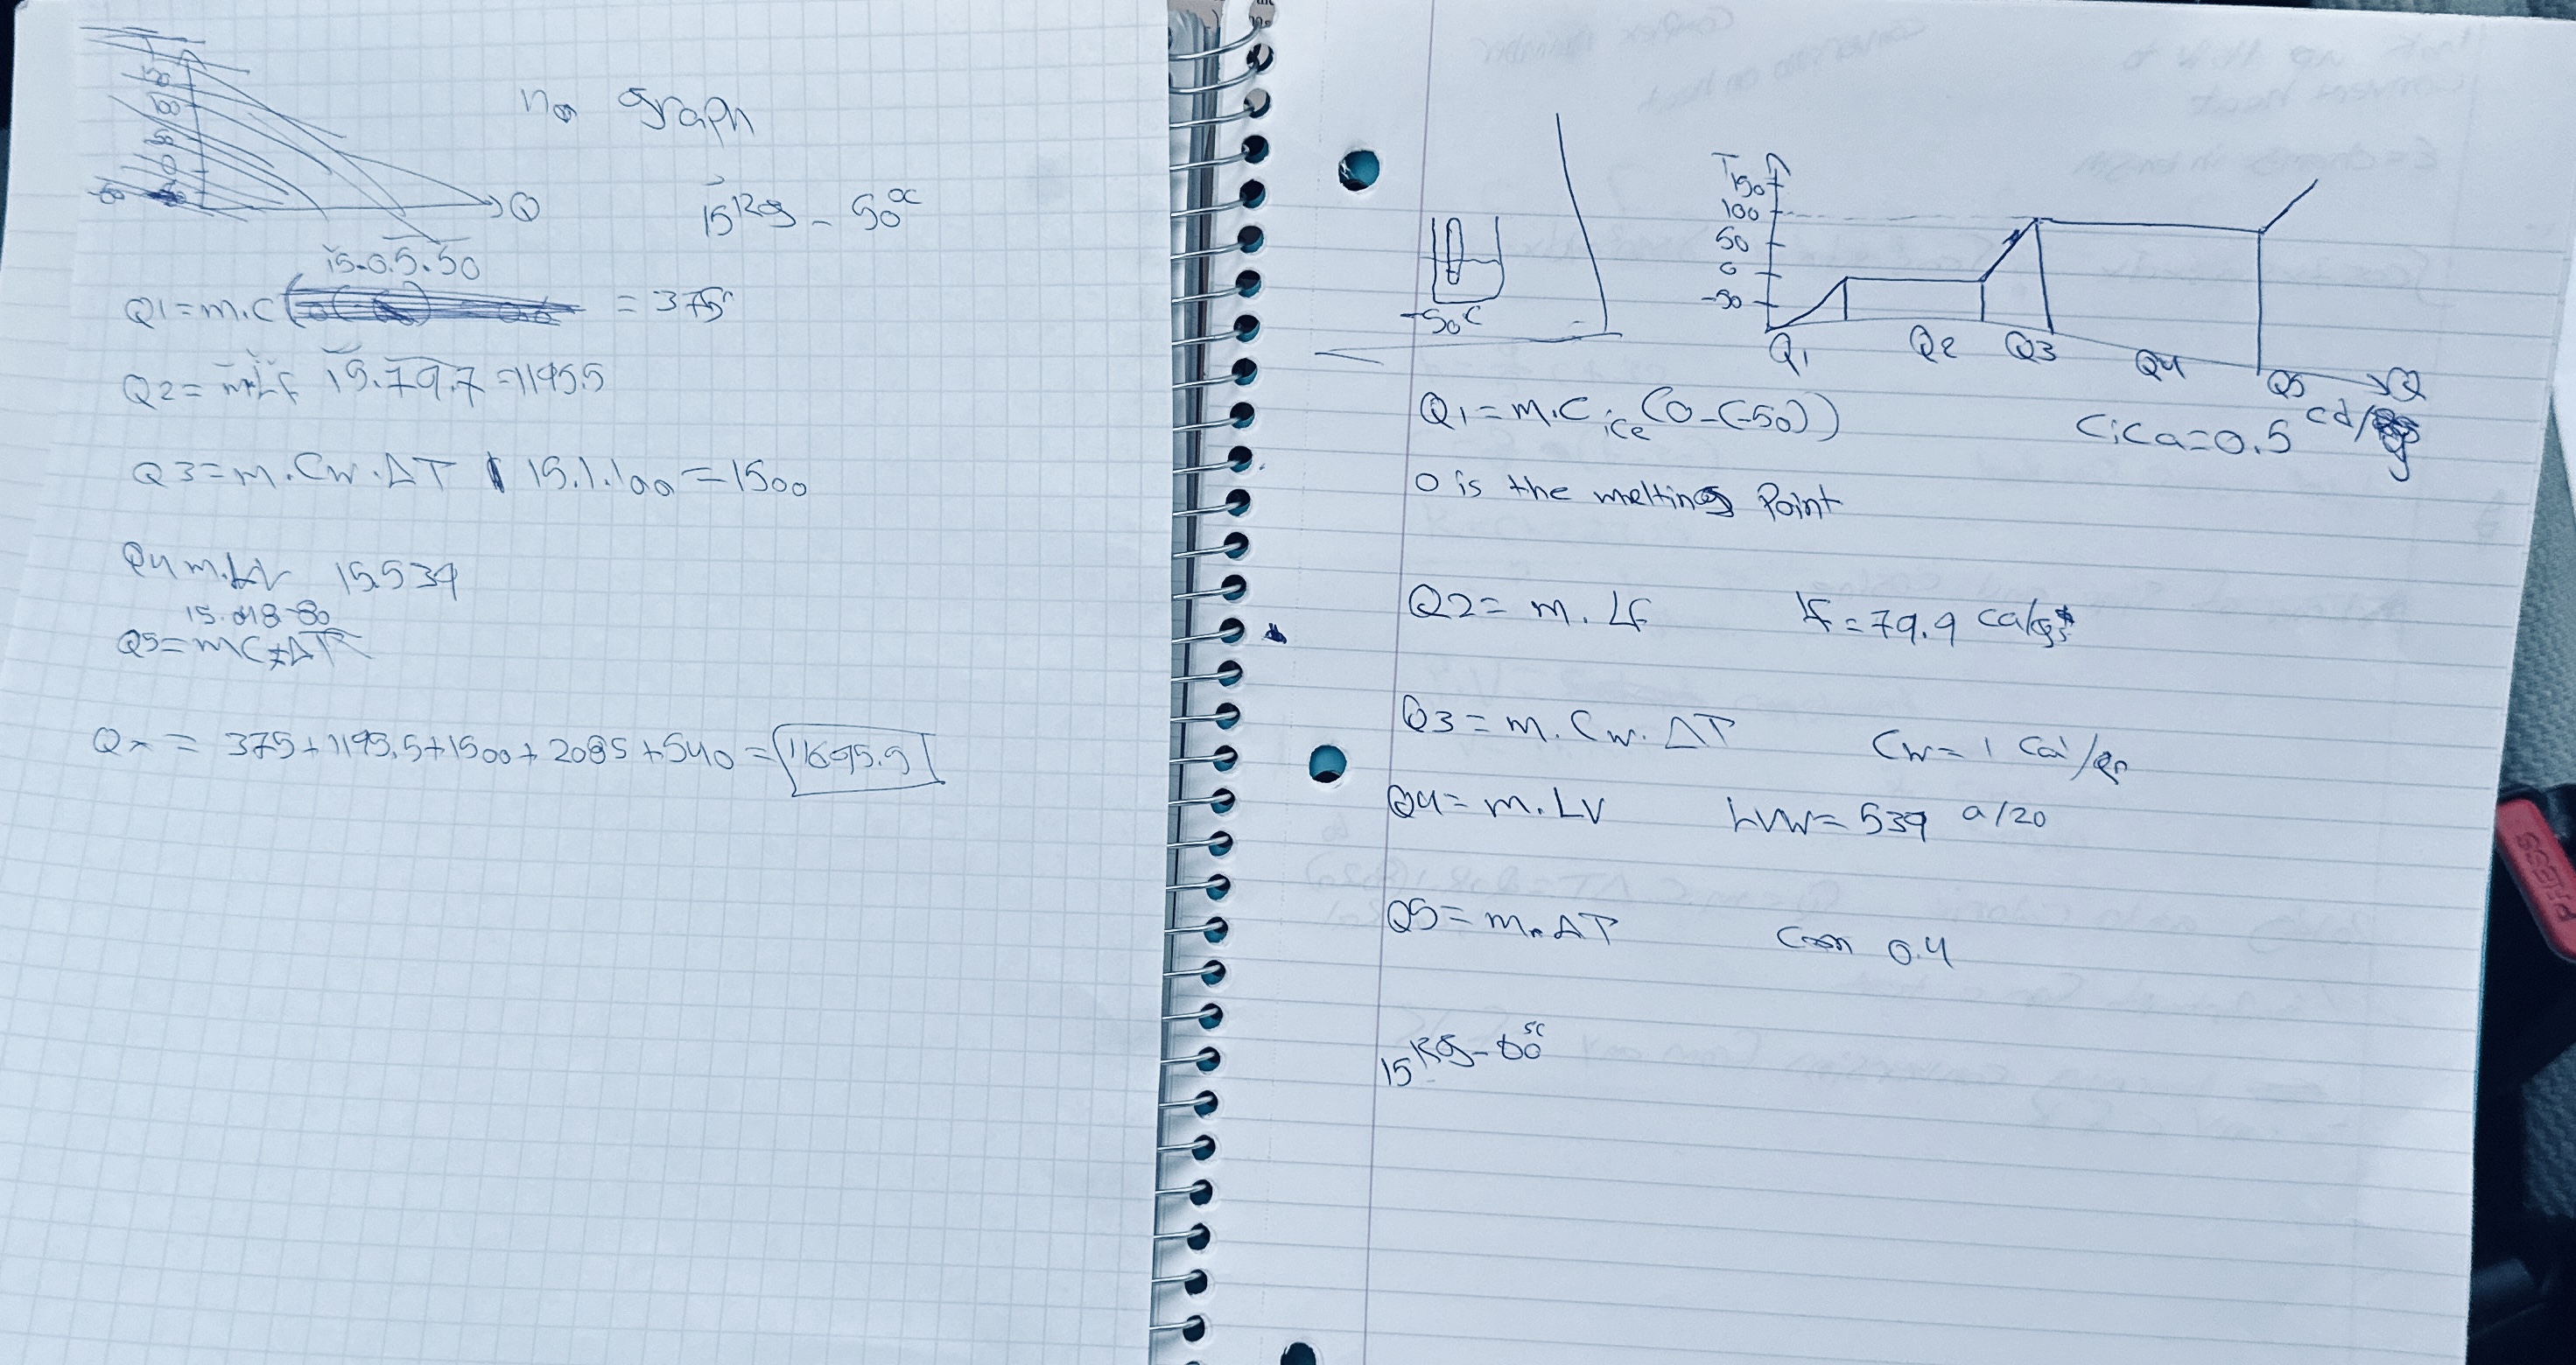 no graph
Q
15kg - 50°C
15.0.5.50
Q1=m.C = 375
Q2= m.Lf 15.79.7=1195.5
Q3=m.Cw.ΔT 15.1.100=1500
Q4 m.LV 15.539
15.048-80
Q5=mC ΔT
= 375+1195.5+1500+2085+540=11695.5
T
150
100
50
0
-50
-50°C
Q1 Q2 Q3 Q4 Q5 Q
Q1=m.C ice (0-(-50))
=0.5 g
0 is the melting Point
Q2= m. Lf Lf=79.9
Q3=m.Cw.ΔT Cw=1 Cal/gr
Q4=m.LV LVW=539
Q5=m.ΔT 0.4
15kg-
PIESS